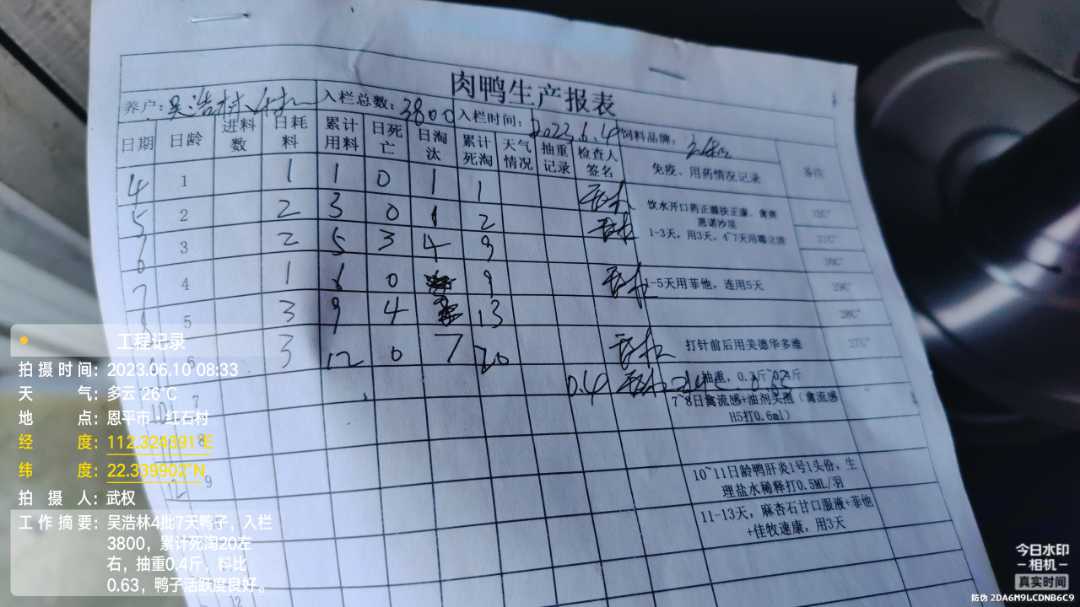 肉鸭生产报表
养户：吴浩林 入栏总数：3800 入栏时间：2022.6.4 饲料品牌：
日期 日龄 进料数 日耗料 累计用料 日死亡 日淘汰 累计死淘 天气情况 抽重记录 检查人签名 免疫、用药情况记录 备注
4 1 1 1 0 1 1
5 2 2 3 0 1 2
3 2 5 3 4 9
6 4 1 6 0 9
7 5 3 9 4 13
8 6 3 12 0 7 20
7 0.4
8
9
1-3天，用3天，4~7天用
1-5天用菲他，连用5天
打针前后用美德华多维
抽重，0.3斤~0.4斤
7~8日禽流感+油剂头孢（禽流感
H5打0.6ml）
10~11日龄鸭肝炎1号1头份，生
理盐水稀释打0.5ML/羽
11-13天，麻杏石甘口服液+菲他
+佳牧速康，用3天
工程记录
拍摄时间：2023.06.10 08:33
天气：多云 26℃
地点：恩平市·红石村
经度：112.324391°E
纬度：22.339902°N
拍摄人：武权
工作摘要：吴浩林4批7天鸭子，入栏
3800，累计死淘20左
右，抽重0.4斤，料比
0.63，鸭子活跃度良好。
今日水印
相机
真实时间
防伪 2DA6M9LCDNB6C9